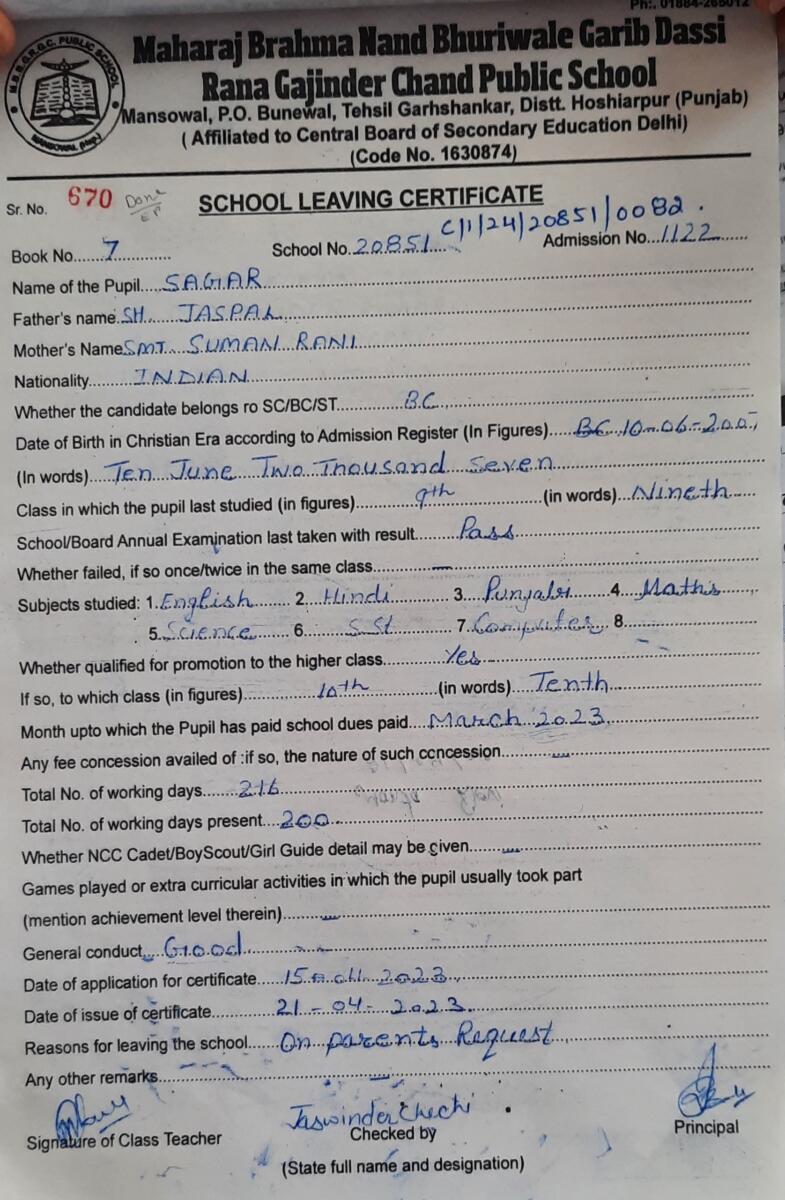 Ph:. 01884-265012
M.B.B.G.R.G.C. PUBLIC SCHOOL
MANSOWAL (Hsp.)
Maharaj Brahma Nand Bhuriwale Garib Dassi
Rana Gajinder Chand Public School
Mansowal, P.O. Bunewal, Tehsil Garhshankar, Distt. Hoshiarpur (Punjab)
( Affiliated to Central Board of Secondary Education Delhi)
(Code No. 1630874)
Sr. No. 670 Done SCHOOL LEAVING CERTIFiCATE
C/1/24/20851/0082.
Book No.......7............ School No.20851 Admission No...1122.......
Name of the Pupil.....SAGAR
Father's name SH. JASPAL
Mother's Name SMT. SUMAN RANI
Nationality.........INDIAN
Whether the candidate belongs ro SC/BC/ST............B.C.
Date of Birth in Christian Era according to Admission Register (In Figures).....BC 10-06-2007
(In words)...Ten June Two Thousand Seven
Class in which the pupil last studied (in figures)............9th............(in words)...Nineth
School/Board Annual Examination last taken with result........Pass
Whether failed, if so once/twice in the same class............—
Subjects studied: 1.English........ 2. Hindi........ 3. Punjabi........4. Maths
5.Science...... 6. S.St........ 7.Computer 8...........
Whether qualified for promotion to the higher class............Yes
If so, to which class (in figures)............10th............(in words)...Tenth
Month upto which the Pupil has paid school dues paid....March 2023
Any fee concession availed of :if so, the nature of such concession............—
Total No. of working days.......216
Total No. of working days present....200
Whether NCC Cadet/BoyScout/Girl Guide detail may be given.......—
Games played or extra curricular activities in which the pupil usually took part
(mention achievement level therein).......—
General conduct....Good
Date of application for certificate....15-04-2023
Date of issue of certificate............21-04-2023
Reasons for leaving the school......On parents Request
Any other remarks............—
Jaswinder Chechi
Signature of Class Teacher Checked by Principal
(State full name and designation)